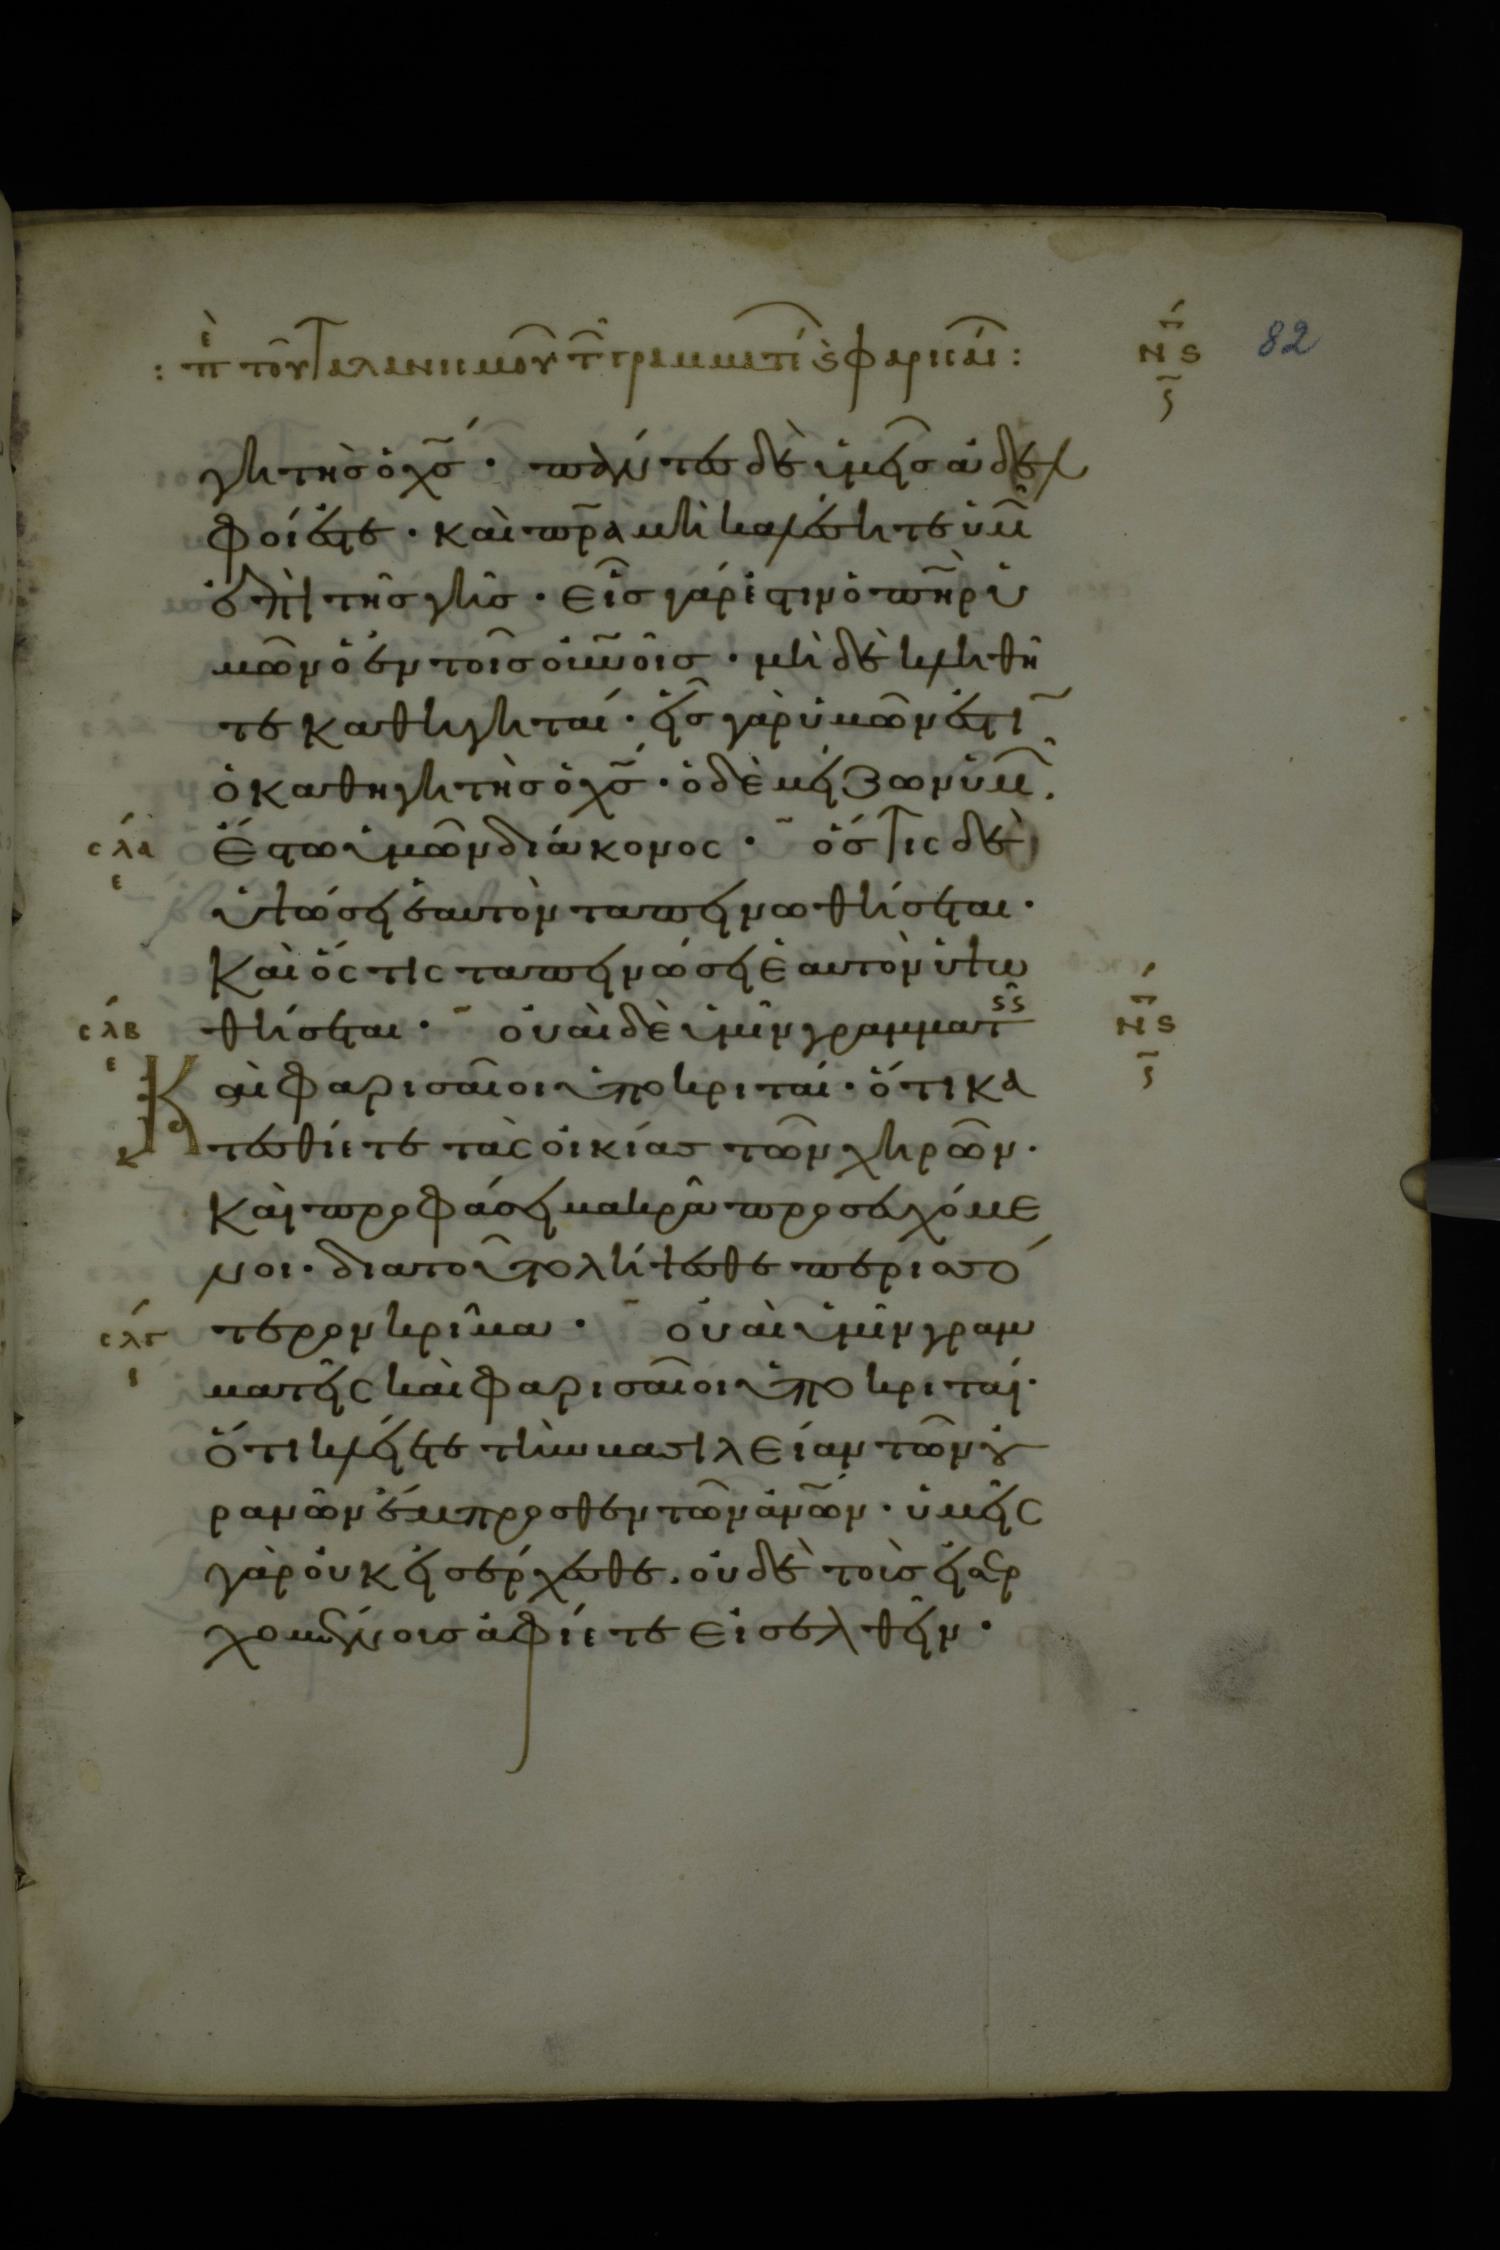 : πε τοῦ ταλανισμοῦ τ γραμματ ϛ φαρισαί :
ΝϚ 82
γητὴς ὁ χς · πάντες δὲ ὑμεῖς ἀδελ
φοί ἐστε · καὶ πρα μὴ καλέσητε ὑμ
ἐπὶ τῆς γῆς · εἷς γάρ ἐστιν ὁ πηρ ὑ
μῶν ὁ ἐν τοῖς οὐνοις · μὴ δὲ κληθῆ
τε καθηγηταί · εἷς γὰρ ὑμῶν ἐστι
ὁ καθηγητὴς ὁ χς · ὁ δὲ μείζων ὑμ .
σλα ἔστω ὑμῶν διάκονος · ὅστις δὲ
ε ὑψώσει ἑαυτὸν ταπεινωθήσεται ·
καὶ ὅστις ταπεινώσει ἑαυτὸν ὑψω
σλβ θήσεται · οὐαὶ δὲ ὑμῖν γραμματ
ε καὶ φαρισαῖοι ὑποκριταί · ὅτι κα
ΝϚ
τεσθίετε τὰς οἰκίας τῶν χηρῶν ·
καὶ προφάσει μακρὰ προσευχόμε
νοι · διατοῦτο λήψεσθε περισσό
σλγ τερον κρίμα · οὐαὶ ὑμῖν γραμ
ματεῖς καὶ φαρισαῖοι ὑποκριταί ·
ὅτι κλείετε τὴν βασιλείαν τῶν οὐ
ρανῶν ἔμπροσθεν τῶν ἀνων · ὑμεῖς
γὰρ οὐκ εἰσέρχεσθε . οὐδὲ τοὺς εἰσερ
χομένοις ἀφίετε εἰσελθεῖν ·